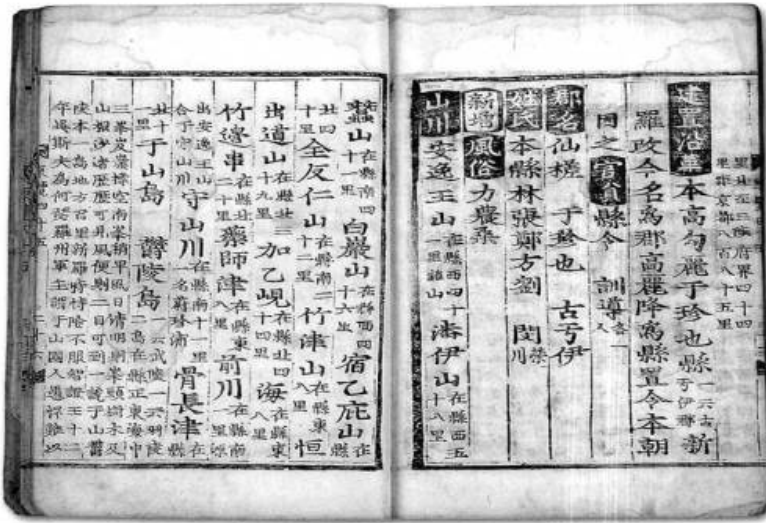 里北至三陟府界四十四
里距京都八百八十五里
建置沿革 本高勾麗于珍也縣 一云古亐伊郡 新
羅改今名爲郡高麗降爲縣置令本朝
因之 官員 縣令 訓導 各一人
郡名 仙槎 于珍也 古亐伊
姓氏 本縣林張鄭房劉 閔
新增 風俗 力農桑
山川 安逸王山 在縣西四十一里鎭山 潘伊山 在縣西五十八里
蠶山 在縣南四十一里 白巖山 在縣西四十六里 宿乙庇山 在縣
北四十里 全反仁山 在縣南二十二里 竹津山 在縣東八里 恒
出道山 在縣北三十九里 加乙峴 在縣北四十四里 海 在縣東八里
竹邊串 在縣北二十里 藥師津 在縣東八里 前川 在縣南一里源
出安逸王山合于守山川 守山川 在縣南十一里一名蔚珍浦 骨長津 在縣
北十一里 于山島 鬱陵島 一云武陵一云羽陵二島在縣正東海中
三峯岌嶪撑空南峯稍卑風日清明則峯頭樹木及
山根沙渚歷歷可見風便則二日可到一說于山鬱
陵本一島地方百里新羅時恃險不服智證王十二
年異斯夫爲何瑟羅州軍主謂于山國人愚悍難以